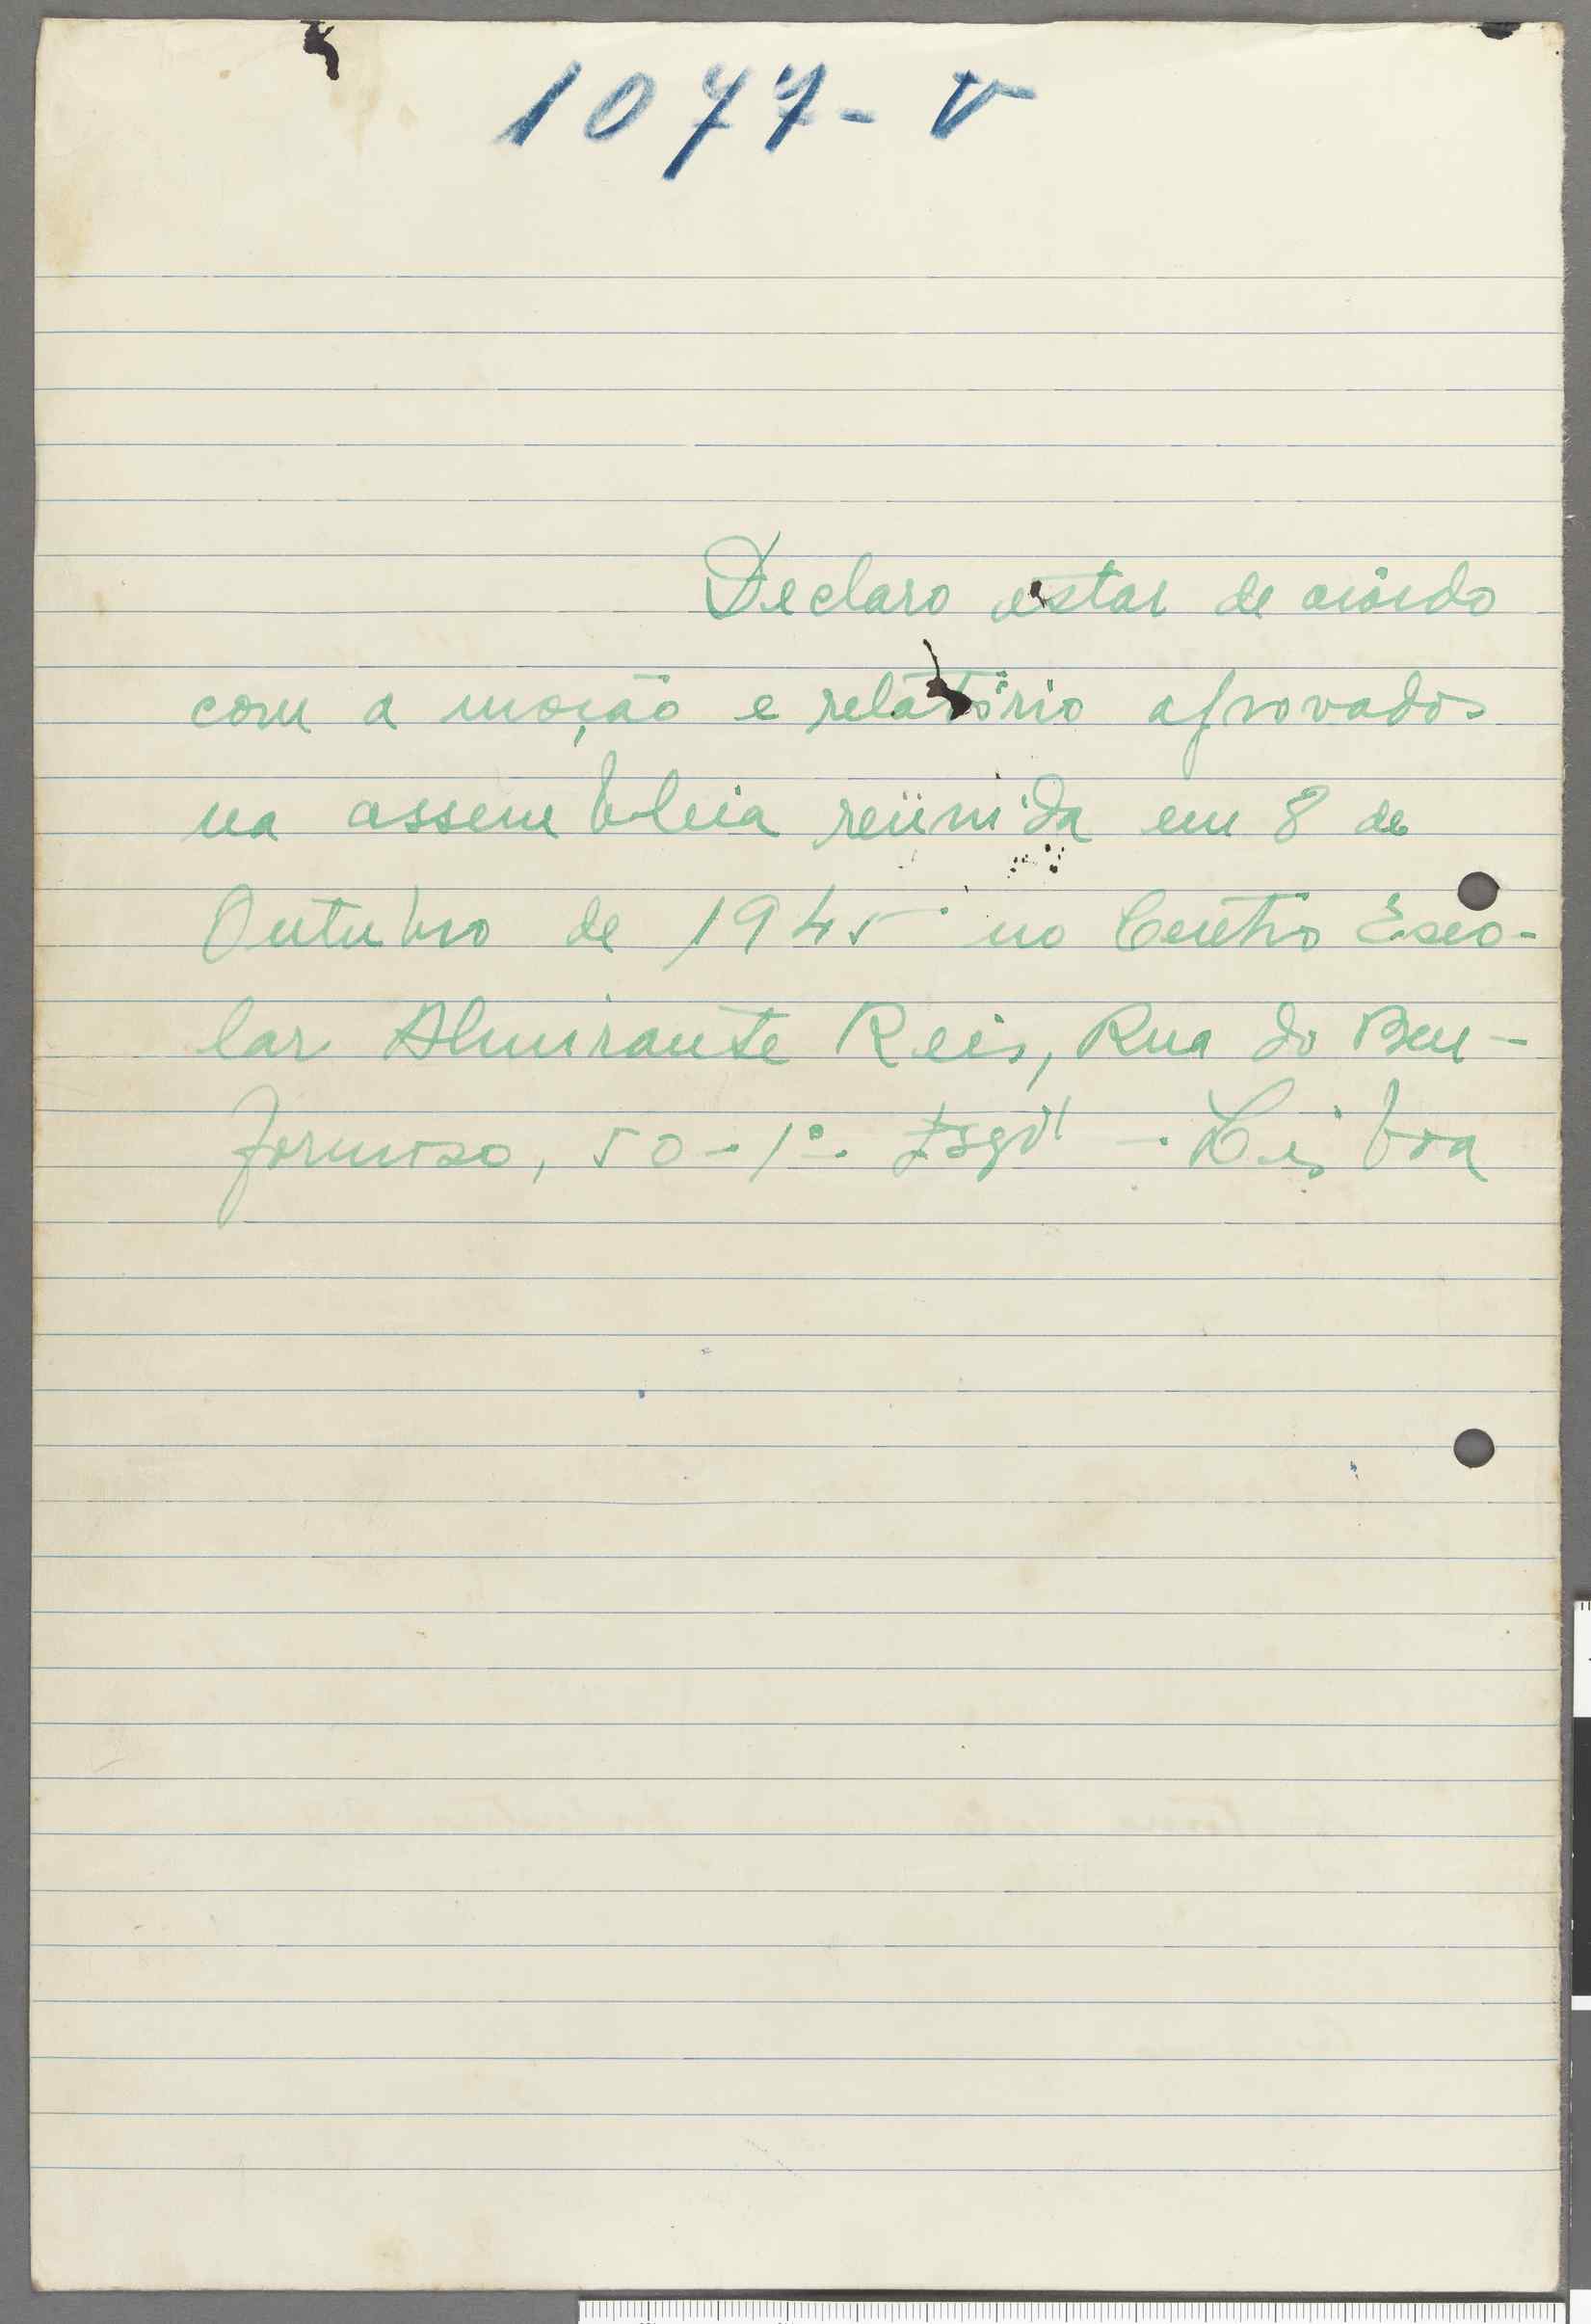 1077-V
Declaro estar de acôrdo
com a moção e relatório aprovados
na assembleia reünida em 8 de
Outubro de 1945 no Centro Esco-
lar Almirante Reis, Rua do Ben-
formoso, 50-1º. Esqº - Lisboa